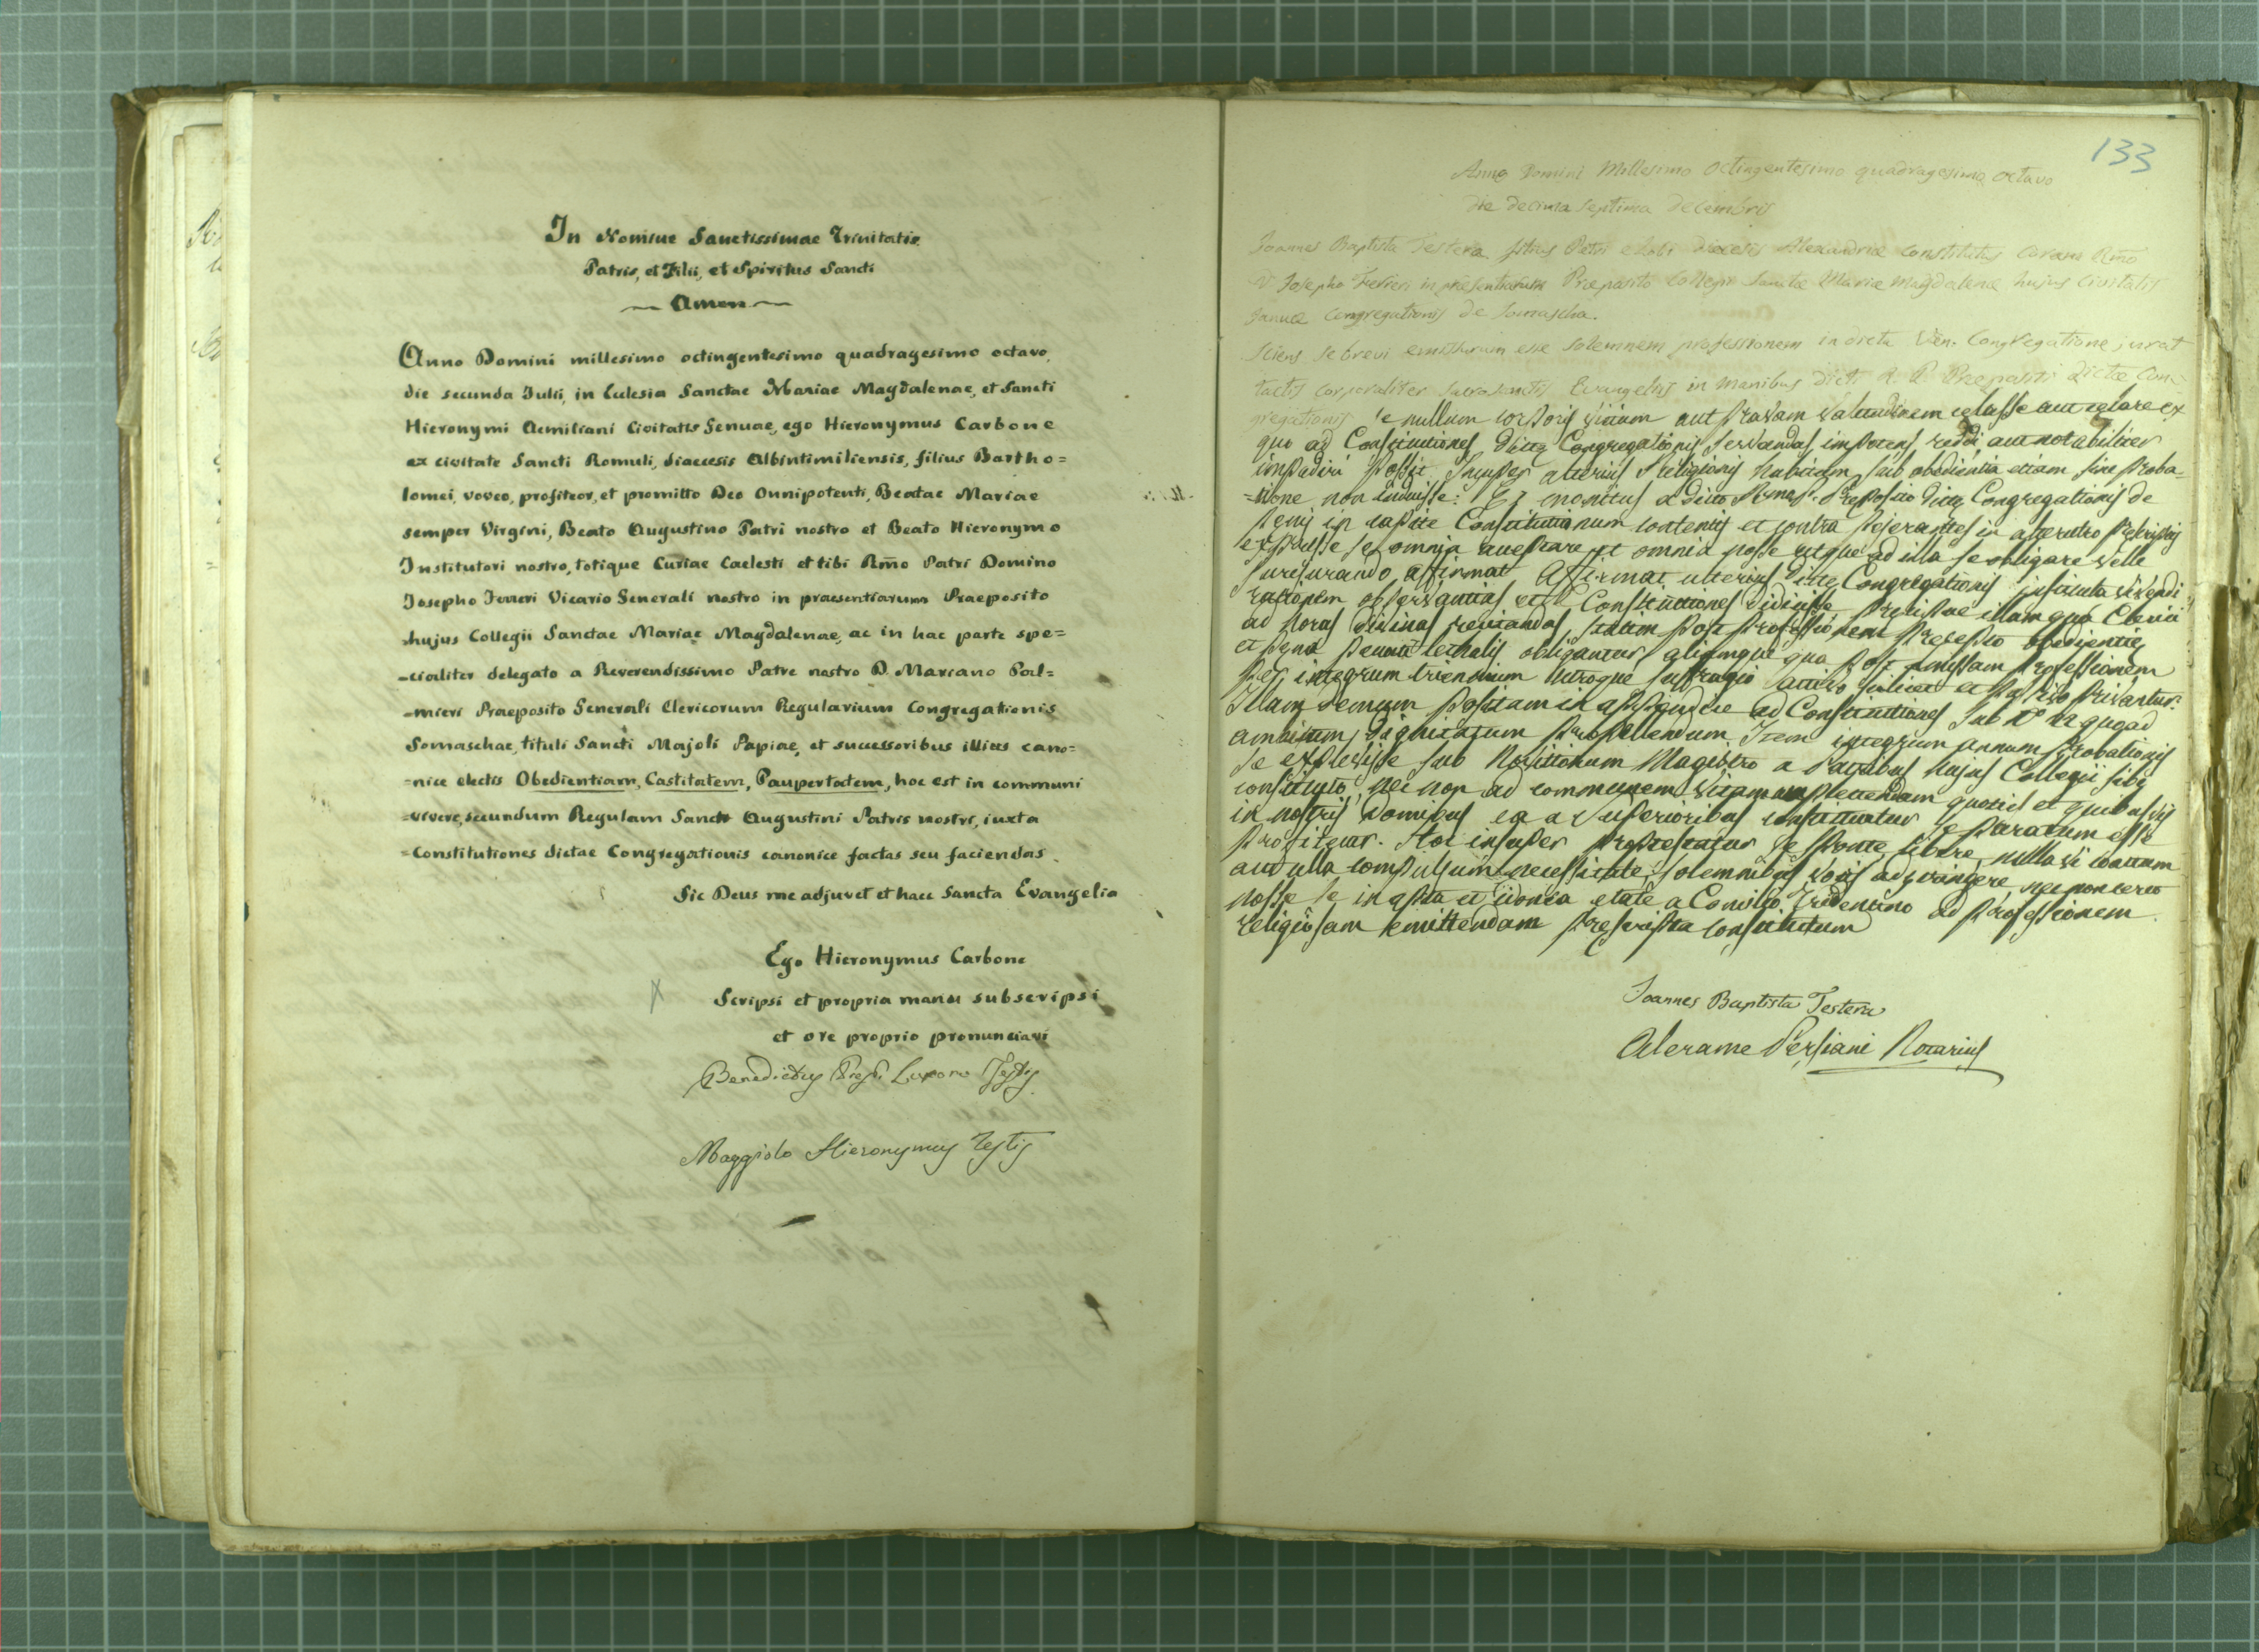 In Nomine Sanctissimae Trinitatis
Patris, et Filii, et Spiritus Sancti
Amen
Anno Domini millesimo octingentesimo quadragesimo octavo,
die secunda Julii, in Eclesia Sanctae Mariae Magdalenae, et Sancti
Hieronymi Aemiliani Civitatis Genuae, ego Hieronymus Carbone
ex civitate Sancti Romuli, diaecesis Albintimiliensis, filius Bartho=
lomei, voveo, profiteor, et promitto Deo Omnipotenti, Beatae Mariae
semper Virgini, Beato Augustino Patri nostro et Beato Hieronymo
Institutori nostro, totique Curiae Caelesti et tibi Rmo Patri Domino
Josepho Ferreri Vicario Generali nostro in praesentiarum Praeposito
hujus Collegii Sanctae Mariae Magdalenae, ac in hac parte spe=
=cialiter delegato a Reverendissimo Patre nostro D. Mariano Pal=
=mieri Praeposito Generali Clericorum Regularium Congregationis
Somaschae, tituli Sancti Majoli Papiae, et successoribus illius cano=
=nice electis Obedientiam, Castitatem, Paupertatem, hoc est in communi
=vivere, secundum Regulam Sancti Augustini Patris nostri, iuxta
=Constitutiones dictae Congregationis canonice factas seu faciendas.
Sic Deus me adjuvet et haec Sancta Evangelia
Ego Hieronymus Carbone
Scripsi et propria manu subscripsi
et ore proprio pronunciavi
Benedictus Luxoro Testis
Maggiolo Hieronymus Testis
133
Anno Domini Millesimo octingentesimo quadragesimo octavo
die decima septima decembris
Joannes Baptista Testera filius Petri diecesis Alexandriae constitutus coram Rmo
D. Josepho Ferreri in presentiarum Preposito Collegii Sanctae Mariae Magdalenae hujus Civitatis
Januae Congregationis de Somascha.
Sciens se brevi emissurum esse solemnem professionem in dicta Ven. Congregatione jurat
tactis corporaliter sacrosanctis Evangeliis in manibus dicti R. P. Praepositi dictae Con=
gregationis se nullum corporis vitium aut pravam valetudinem celasse aut celare ex
quo ad Constitutiones dictę Congregationis servandas impotens reddi aut notabiliter
impediri possit Insuper alterius religionis habitum sub obedientia etiam sine proba=
=tione non induisse: Et monitus a dicto Preposito dictę Congregationis de
penis in capite Constitutionum contentis et contra pejerantes in alterutro
expresse se omnia et omnia posse utque ad illa se obligare velle
jurejurando affirmat Affirmat ulterius dictę Congregationis instituta vivendi
rationem observantias et Constitutiones didicisse illam qua Clerici
ad horas divinas recitandas statim post professionem precepto obedientię
et pena peccati lethalis obligantur aliamque qua post emissam professionem
per integrum triennium utroque suffragio activo scilicet et passivo privantur.
Illam demum positam in appendice ad Constitutiones sub quoad
ambitum dignitatum propellendum Item integrum annum probationis
se explevisse sub Novitiorum Magistro a Patribus hujus Collegii sibi
constituto, nec non ad communem vitam amplectendam quoties et quibusvis
in nostris Domibus ea a Superioribus constituatur se paratum esse
profitetur. Hoc insuper protestatur se sponte, libere, nulla vi coactum
aut ulla compulsum necessitate, solemnibus votis adstringere, nec non certo
nosse se in apta et idonea etate a Concilio Tridentino ad professionem
religiosam emittendam prescripta constitutum
Joannes Baptista Testera
Alerame Persiani Notarius